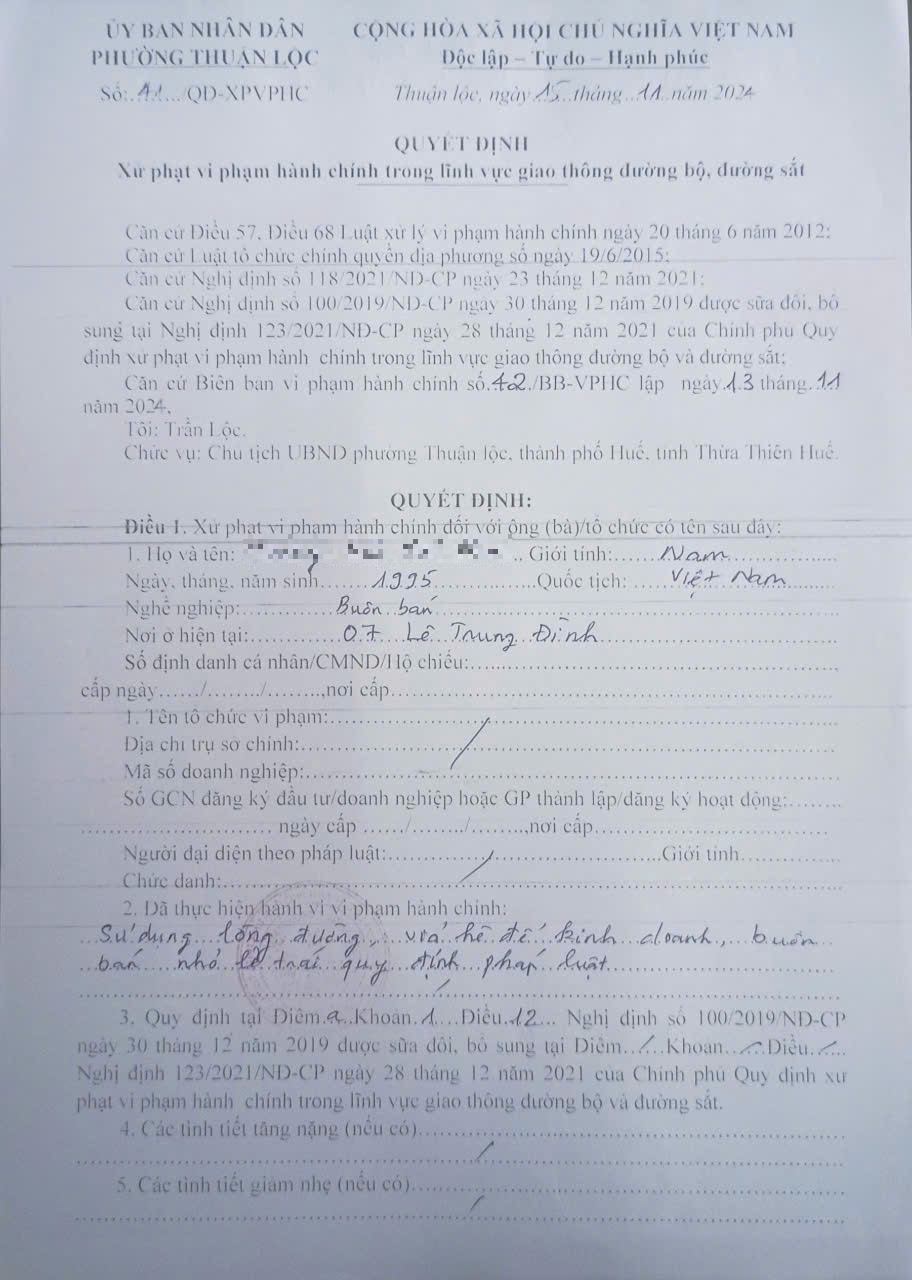 ỦY BAN NHÂN DÂN CỘNG HÒA XÃ HỘI CHỦ NGHĨA VIỆT NAM
PHƯỜNG THUẬN LỘC Độc lập – Tự do – Hạnh phúc
Số:.41.../QĐ-XPVPHC Thuận lộc, ngày 15 tháng 11 năm 2024
QUYẾT ĐỊNH
Xử phạt vi phạm hành chính trong lĩnh vực giao thông đường bộ, đường sắt
Căn cứ Điều 57, Điều 68 Luật xử lý vi phạm hành chính ngày 20 tháng 6 năm 2012;
Căn cứ Luật tổ chức chính quyền địa phương số ngày 19/6/2015;
Căn cứ Nghị định số 118/2021/NĐ-CP ngày 23 tháng 12 năm 2021;
Căn cứ Nghị định số 100/2019/NĐ-CP ngày 30 tháng 12 năm 2019 được sữa đổi, bổ
sung tại Nghị định 123/2021/NĐ-CP ngày 28 tháng 12 năm 2021 của Chính phủ Quy
định xử phạt vi phạm hành chính trong lĩnh vực giao thông đường bộ và đường sắt;
Căn cứ Biên bản vi phạm hành chính số.42./BB-VPHC lập ngày.13 tháng.11
năm 2024,
Tôi: Trần Lộc.
Chức vụ: Chủ tịch UBND phường Thuận lộc, thành phố Huế, tỉnh Thừa Thiên Huế.
QUYẾT ĐỊNH:
Điều 1. Xử phạt vi phạm hành chính đối với ông (bà)/tổ chức có tên sau đây:
1. Họ và tên: .. Giới tính:...... Nam
Ngày, tháng, năm sinh........1995...............Quốc tịch: Việt Nam
Nghề nghiệp:............Buôn bán
Nơi ở hiện tại:............07 Lê Trung Đình
Số định danh cá nhân/CMND/Hộ chiếu:
cấp ngày....../......./........,nơi cấp
1. Tên tổ chức vi phạm:
Địa chỉ trụ sở chính:
Mã số doanh nghiệp:
Số GCN đăng ký đầu tư/doanh nghiệp hoặc GP thành lập/đăng ký hoạt động:
ngày cấp ....../......./........,nơi cấp
Người đại diện theo pháp luật: Giới tính
Chức danh:
2. Đã thực hiện hành vi vi phạm hành chính:
Sử dụng lòng đường, vỉa hè để kinh doanh, buôn
bán nhỏ lẻ trái quy định pháp luật
3. Quy định tại Điểm.a..Khoản.1....Điều.12... Nghị định số 100/2019/NĐ-CP
ngày 30 tháng 12 năm 2019 được sữa đổi, bổ sung tại Điểm../..Khoản../..Điều../..
Nghị định 123/2021/NĐ-CP ngày 28 tháng 12 năm 2021 của Chính phủ Quy định xử
phạt vi phạm hành chính trong lĩnh vực giao thông đường bộ và đường sắt.
4. Các tình tiết tăng nặng (nếu có)
5. Các tình tiết giảm nhẹ (nếu có)